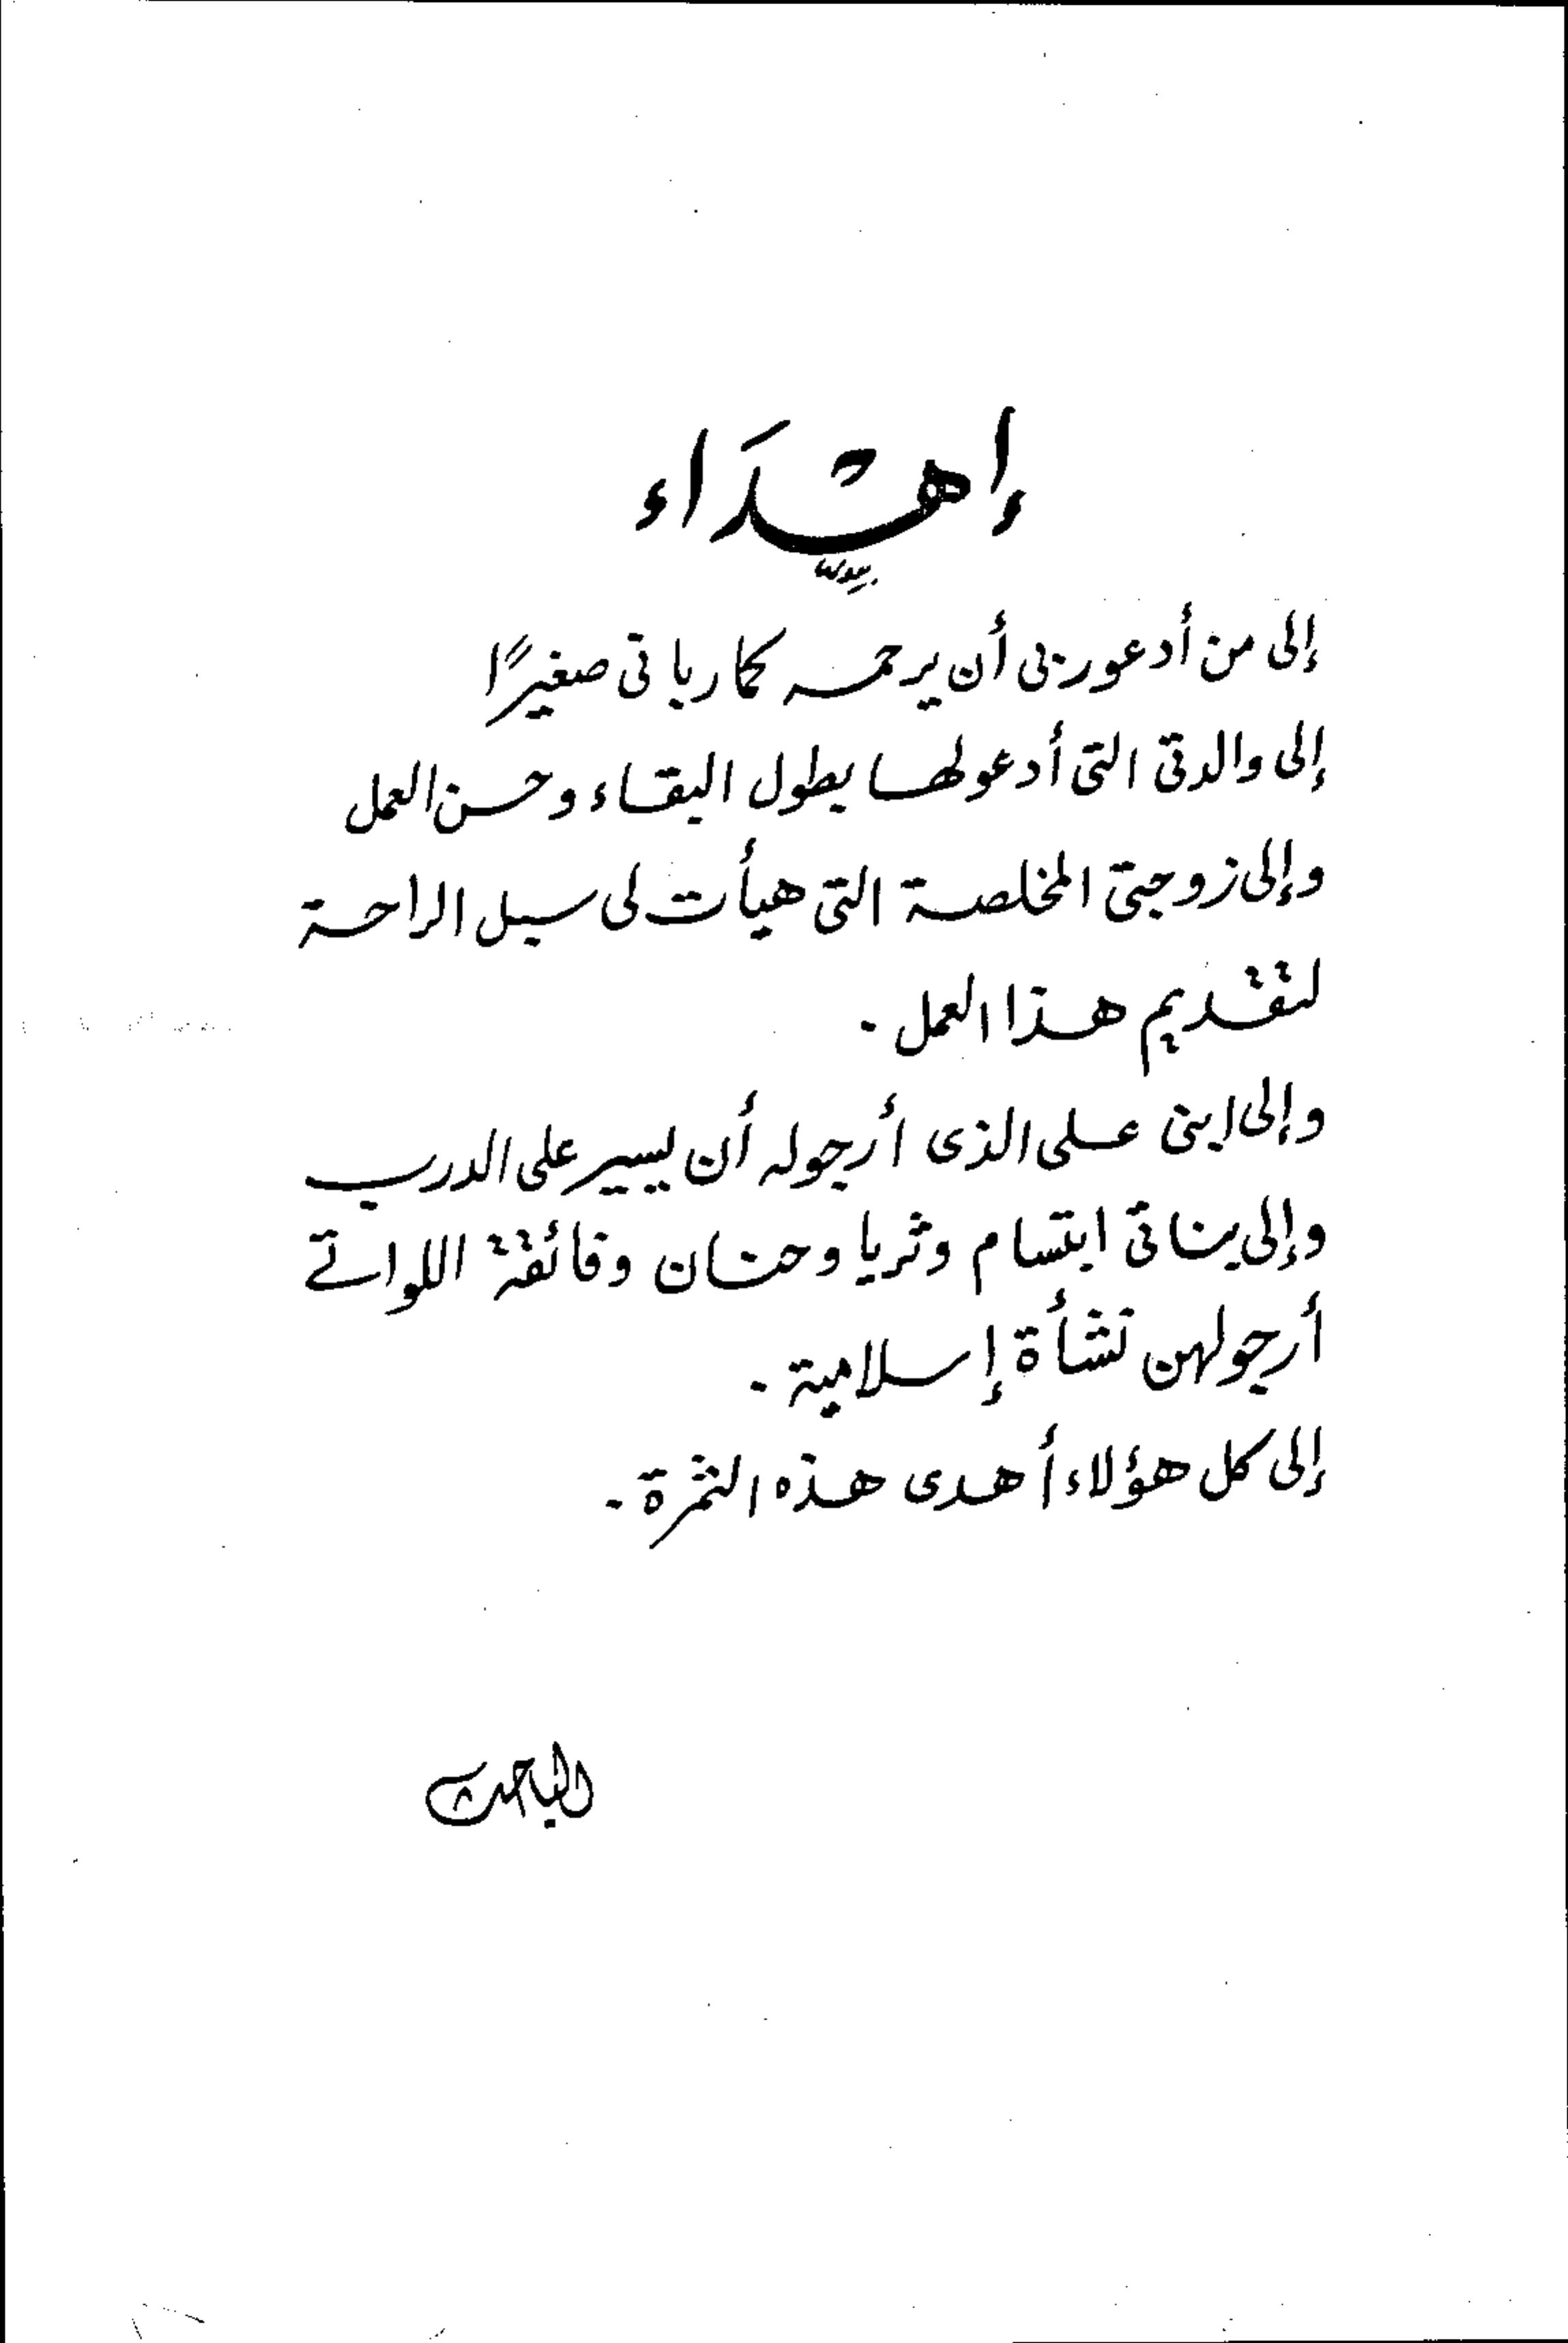 إهداء
إلى من أدعو ربى أن يرحمه كما ربانى صغيرًا
إلى والدتى التى أدعو لها بطول البقاء وحسن العمل
وإلى زوجتى المخلصة التى هيأت لى سبل الراحة
لتقديم هذا العمل .
وإلى ابنى على الذى أرجو له أن يسير على الدرب
وإلى بناتى ابتسام وثريا وحنان وفائقة اللواتى
أرجو لهن نشأة إسلامية .
إلى كل هؤلاء أهدى هذه الثمرة .
الباحث